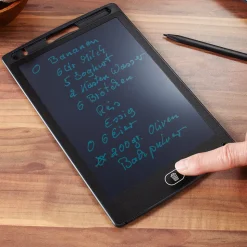 o Bananen
6 Ltr Milch
5 Joghurt
2 Kasten Wasser
6 Brötchen
Reis
Essig
o 6 Eier
200gr Oliven
Backpulver